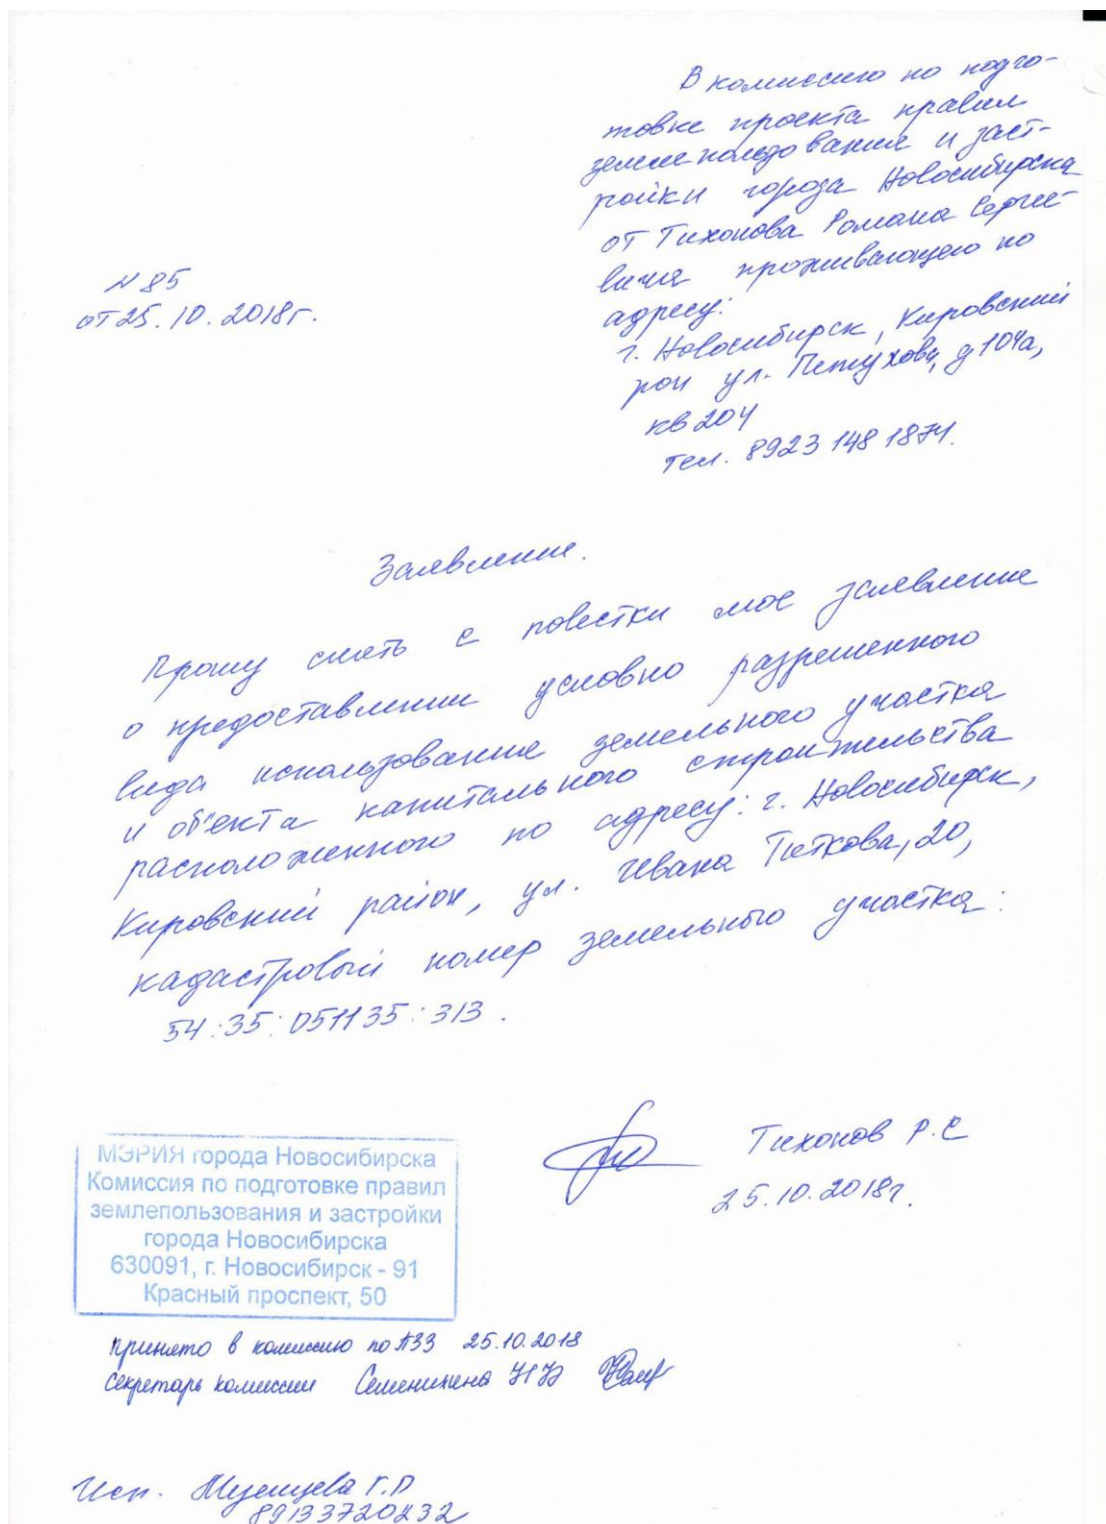 В комиссию по подго-
товке проекта правил
землепользования и заст-
ройки города Новосибирска
от Тихонова Романа Сергее-
вича проживающего по
адресу:
г. Новосибирск, Кировский
рон ул. Петухова, д 104а,
кв 204
тел. 8923 148 1874.
N 85
от 25.10.2018г.
Заявление.
Прошу снять с повестки мое заявление
о предоставлении условно разрешенного
вида использование земельного участка
и объекта капитального строительства
расположенного по адресу: г. Новосибирск,
Кировский район, ул. Ивана Титкова, 20,
кадастровый номер земельного участка:
54:35:051135:313.
Тихонов Р.С
25.10.2018г.
МЭРИЯ города Новосибирска
Комиссия по подготовке правил
землепользования и застройки
города Новосибирска
630091, г. Новосибирск - 91
Красный проспект, 50
принято в комиссию по ПЗЗ 25.10.2018
Секретарь комиссии
Исп. Г.Р